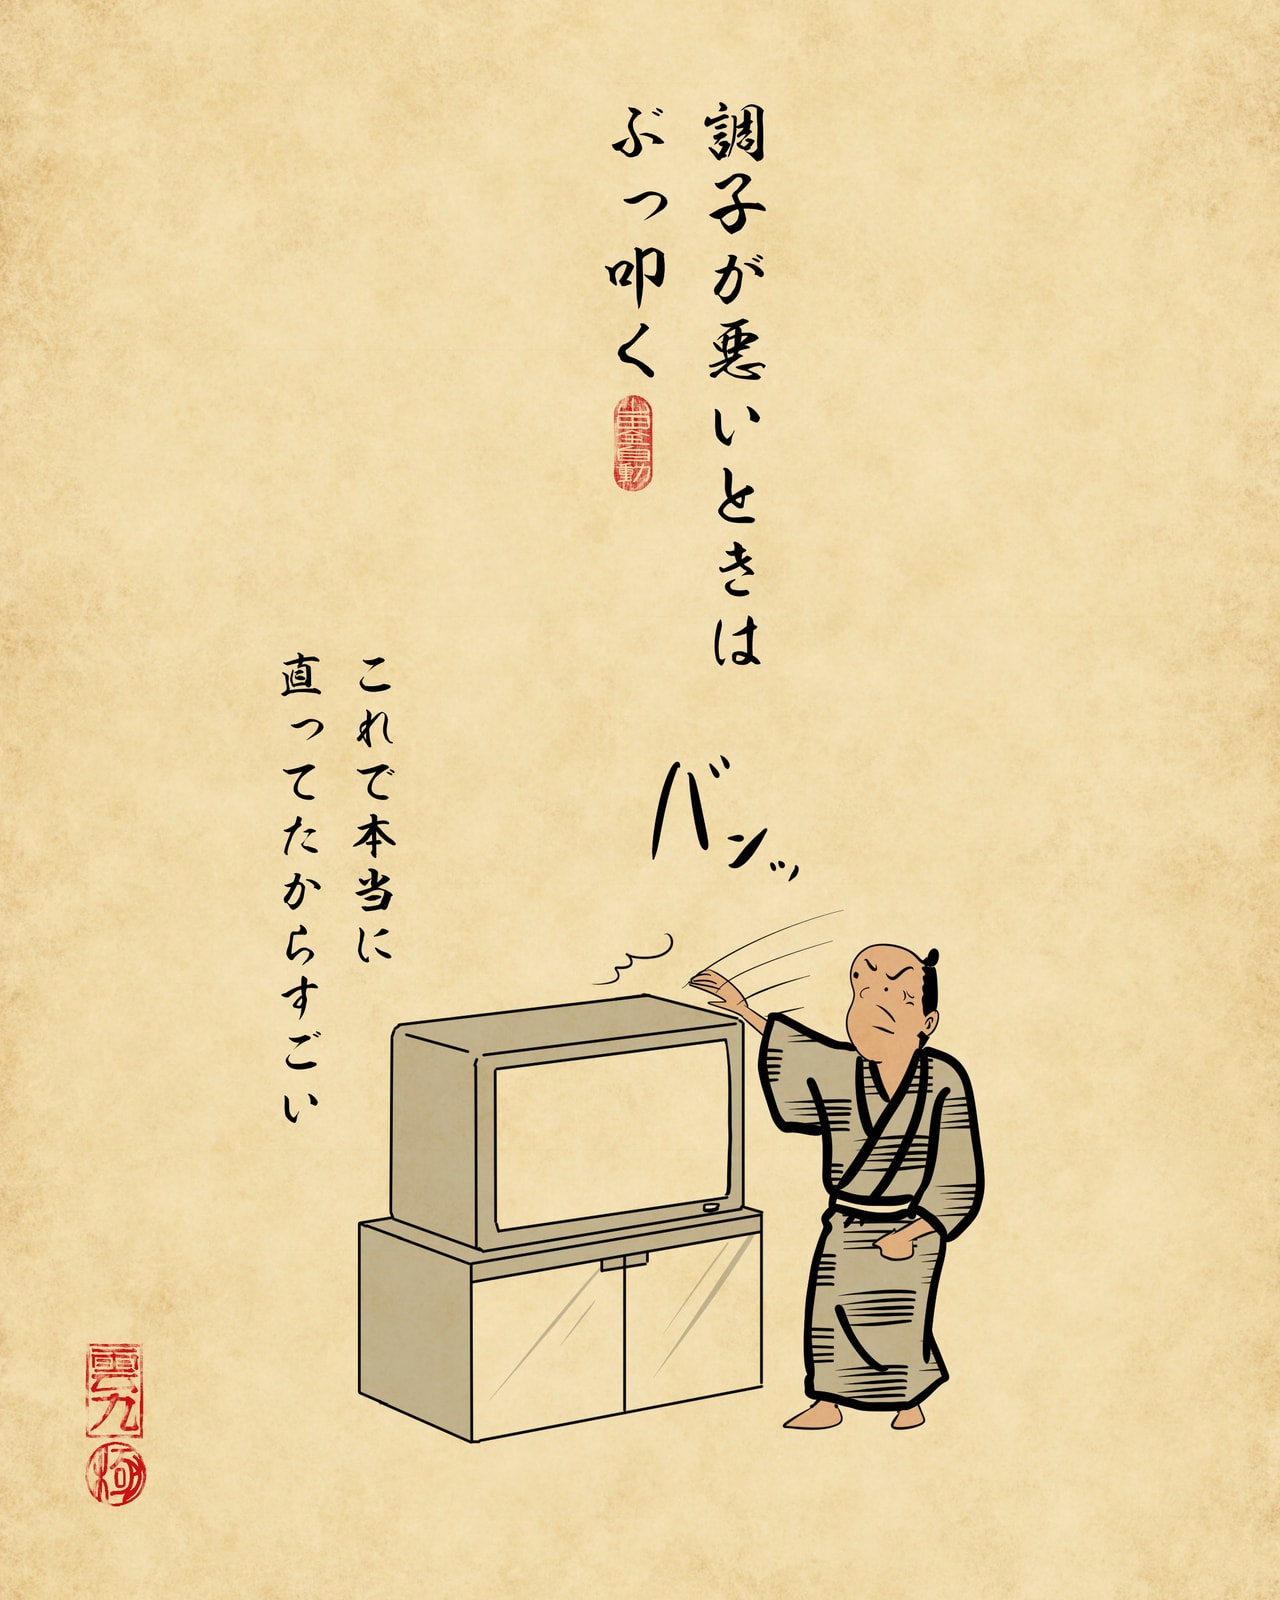 調子が悪いときは
ぶっ叩く
バンッ
これで本当に
直ってたからすごい